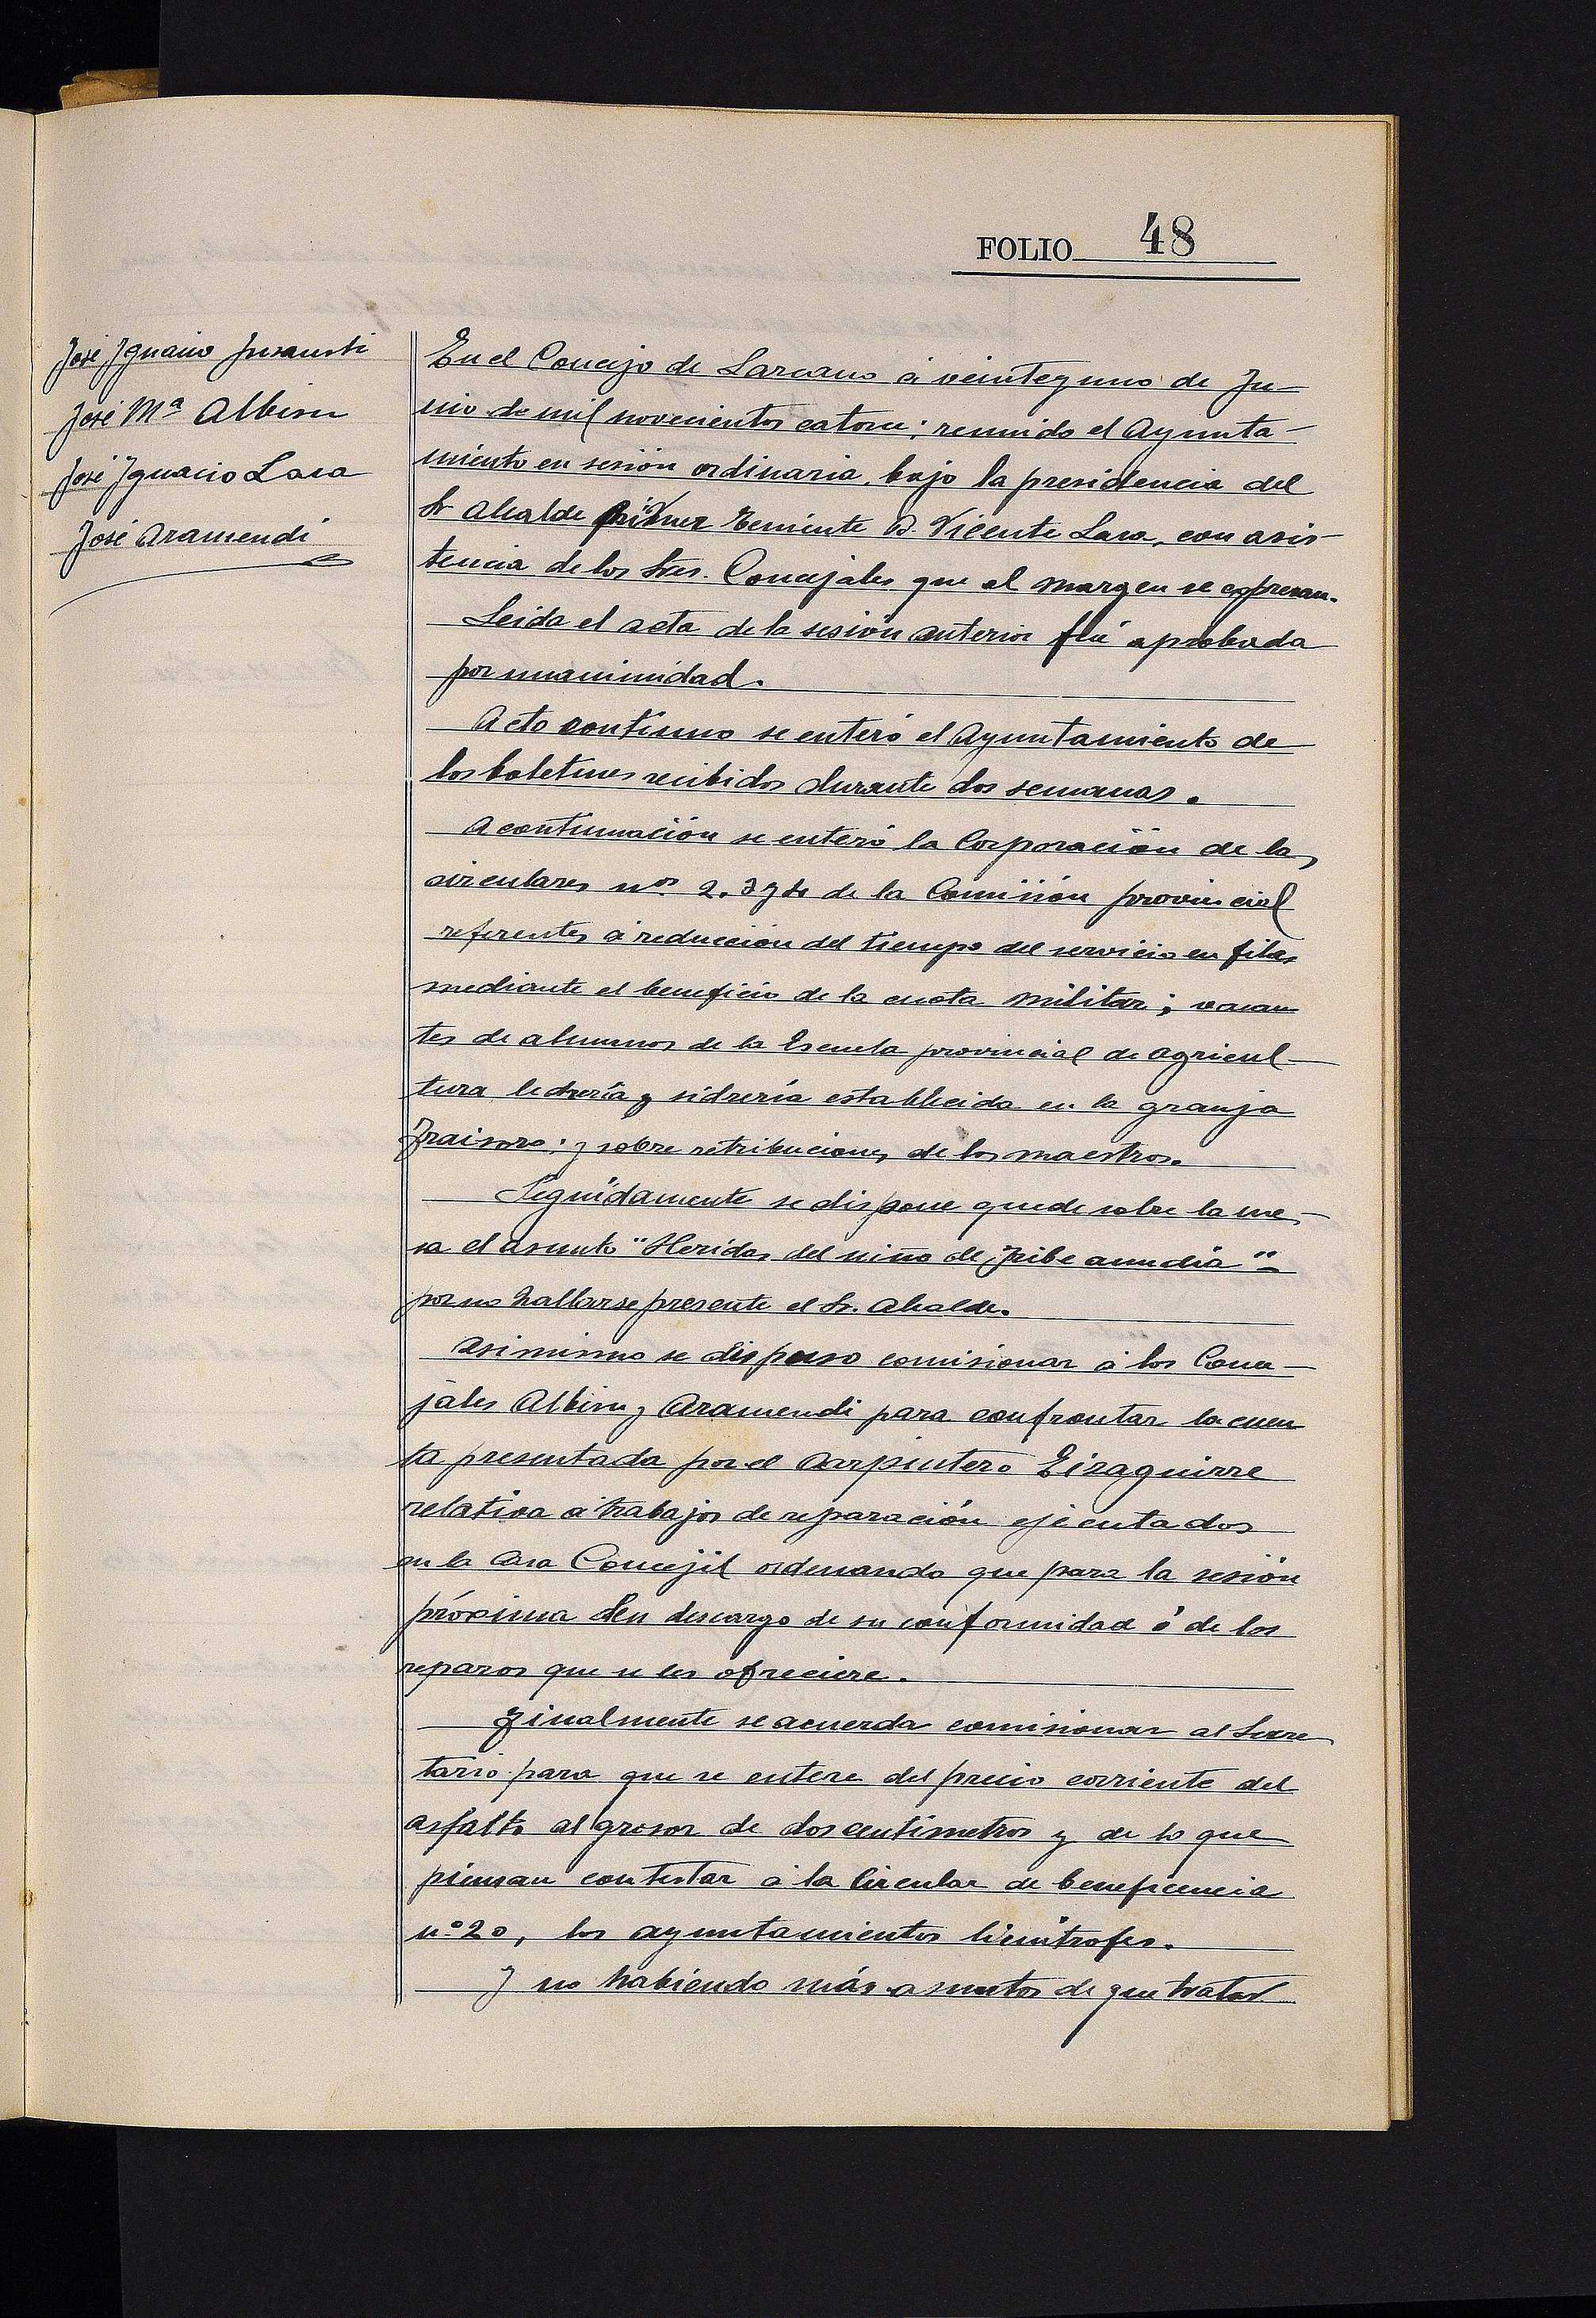 FOLIO 48
José Ignacio Insausti
José Mª Albisu
José Ignacio Lasa
José Aramendi
En el Concejo de Lazcano á veinteyuno de Ju-
nio de mil novecientos catorce; reunido el Ayunta-
miento en sesión ordinaria, bajo la presidencia del
Sr Alcalde primer Teniente D. Vicente Lasa, con asis-
tencia de los Sres. Concejales que al margen se expresan.
Leida el acta de la sesión anterior fué aprobada
por unanimidad.
Acto contínuo se enteró el Ayuntamiento de
los boletines recibidos durante dos semanas.
A continuación se enteró la Corporación de las
circulares nos 2, 3 y 4 de la Comisión provincial
referentes á reducción del tiempo del servicio en filas
mediante el beneficio de la cuota militar; vacan
tes de alumnos de la Escuela provincial de agricul-
tura lechería y sidrería establecida en la granja
Fraisoro; y sobre retribuciones de los maestros.
Seguidamente se dispone quede sobre la me-
sa el asunto "Heridas del niño de Iribe anundia"
por no hallarse presente el Sr. Alcalde.
Asimismo se dispuso comisionar á los Conce-
jales Albisu y Aramendi para confrontar la cuen
ta presentada por el carpintero Eizaguirre
relativa á trabajos de reparación ejecutados
en la Casa Concejil ordenando que para la sesión
próxima den descargo de su conformidad ó de los
reparos que se les ofreciere.
Finalmente se acuerda comisionar al Secre
tario para que se entere del precio corriente del
asfalto al grosor de dos centímetros y de lo que
piensan contestar á la Circular de beneficencia
nº 20, los ayuntamientos limítrofes.
Y no habiendo más asuntos de que tratar